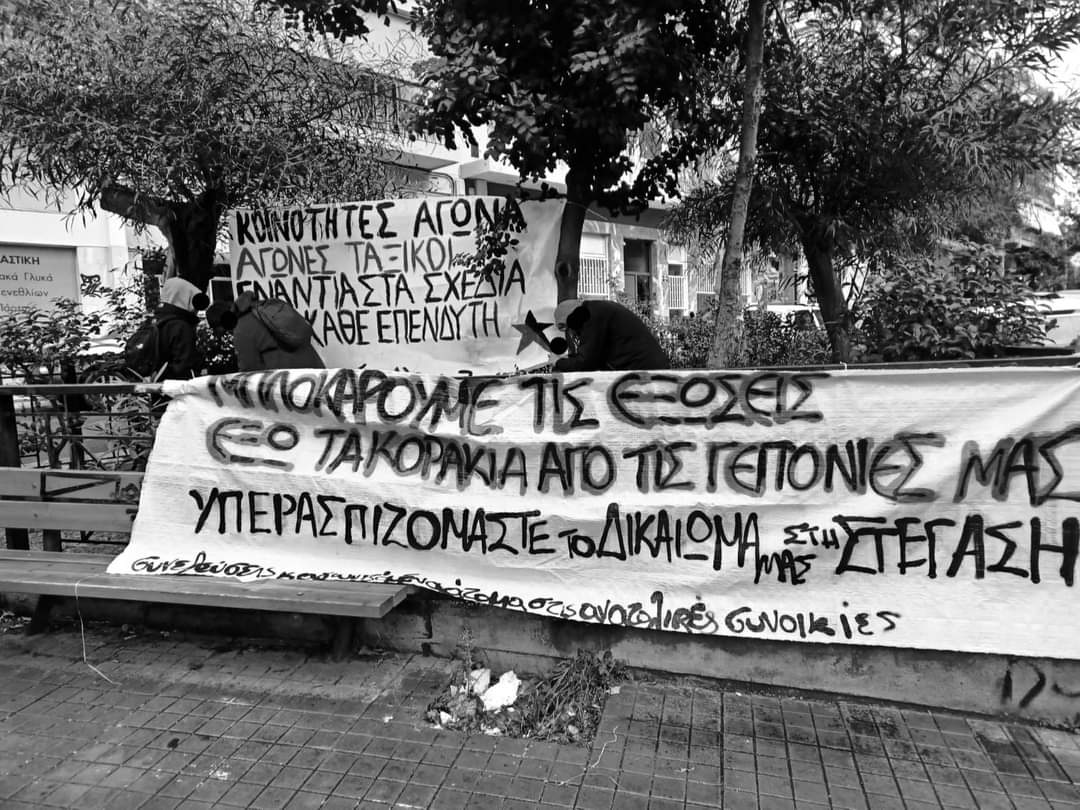 ΚΟΙΝΟΤΗΤΕΣ ΑΓΩΝΑ
ΑΓΩΝΕΣ ΤΑΞΙΚΟΙ
ΕΝΑΝΤΙΑ ΣΤΑ ΣΧΕΔΙΑ
ΚΑΘΕ ΕΠΕΝΔΥΤΗ
ΑΣΤΙΚΗ
ακά Γλυκά
ενεθλίων
ΜΠΛΟΚΑΡΟΥΜΕ ΤΙΣ ΕΞΩΣΕΙΣ
ΕΞΩ ΤΑ ΚΟΡΑΚΙΑ ΑΠΟ ΤΙΣ ΓΕΙΤΟΝΙΕΣ ΜΑΣ
ΥΠΕΡΑΣΠΙΖΟΜΑΣΤΕ ΤΟ ΔΙΚΑΙΩΜΑ ΜΑΣ ΣΤΗ ΣΤΕΓΑΣΗ
συνελεύσεις στις ανατολικές συνοικίες